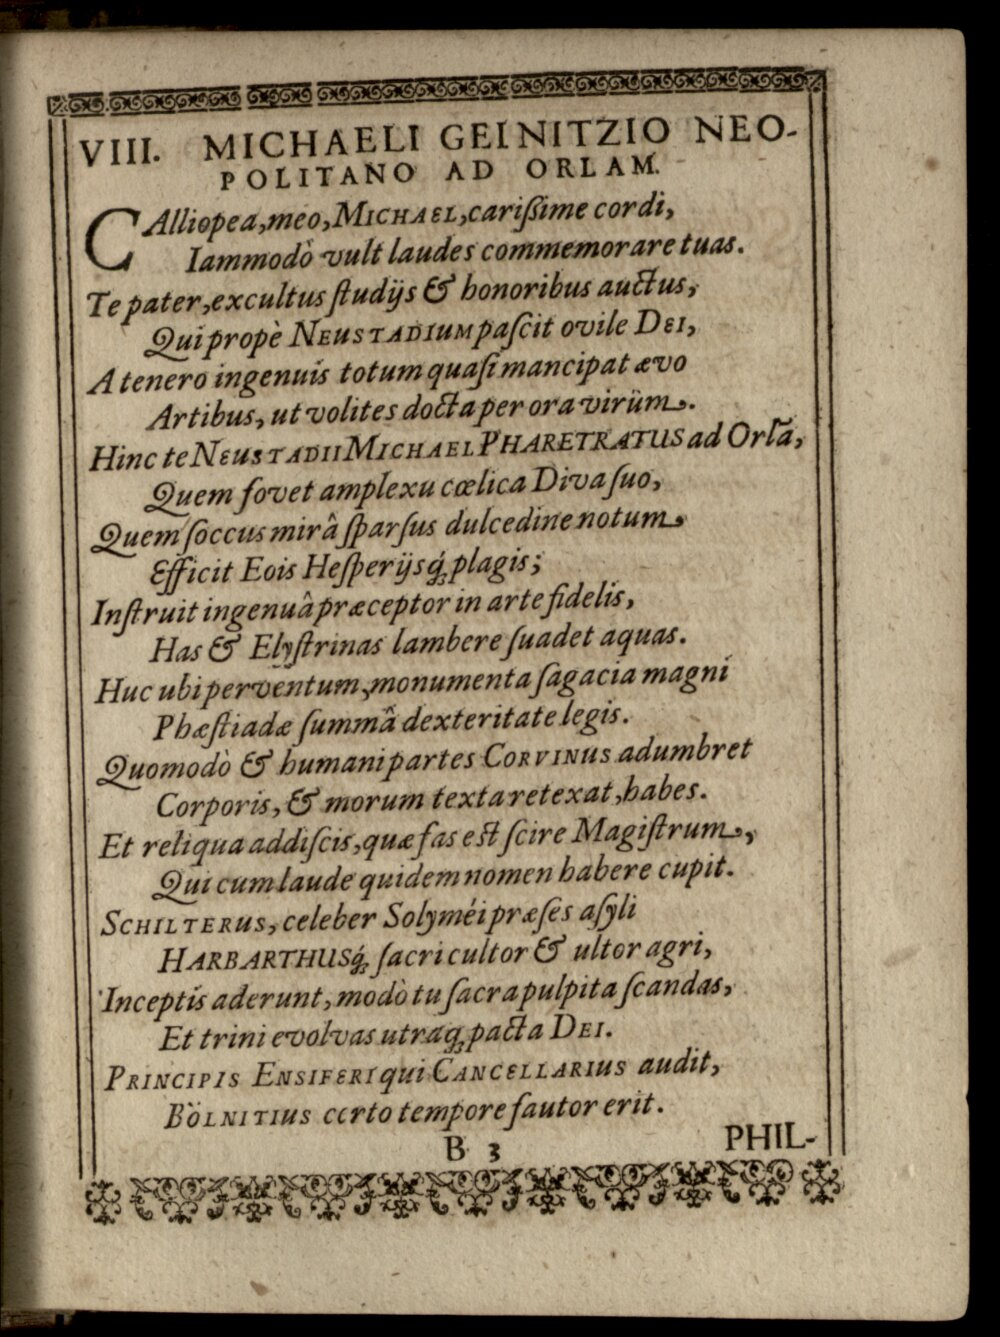 VIII. MICHAELI GEINITZIO NEO-
POLITANO AD ORLAM.
CAlliopea, meo, MICHAEL, carißime cordi,
Iammodò vult laudes commemorare tuas.
Te pater, excultus ſtudijs & honoribus auctus,
Qui propè NEUSTADIUM paſcit ovile DEI,
A tenero ingenuis totum quaſi mancipat ævo
Artibus, ut volites docta per ora virûm.
Hinc te NEUSTADII MICHAEL PHARETRATUS ad Orlã,
Quem fovet amplexu cœlica Diva ſuo,
Quem ſoccus mirâ ſparſus dulcedine notum
Efficit Eois Heſperijsq́; plagis;
Inſtruit ingenuâ præceptor in arte fidelis,
Has & Elyſtrinas lambere ſuadet aquas.
Huc ubi perventum, monumenta ſagacia magni
Phæſtiadæ ſummâ dexteritate legis.
Quomodò & humani partes CORVINUS adumbret
Corporis, & morum texta retexat, habes.
Et reliqua addiſcis, quæ fas eſt ſcire Magiſtrum,
Qui cum laude quidem nomen habere cupit.
SCHILTERUS, celeber Solyméi præſes aſyli
HARBARTHUSq́; ſacri cultor & ultor agri,
Inceptis aderunt, modò tu ſacra pulpita ſcandas,
Et trini evolvas utraq; pacta DEI.
PRINCIPIS ENSIFERI qui CANCELLARIUS audit,
BÖLNITIUS certo tempore fautor erit.
B 3
PHIL-